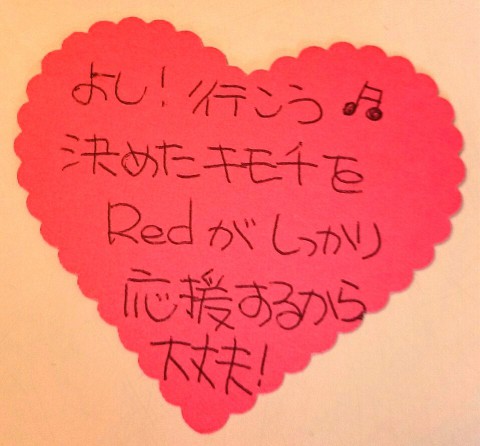 よし！行こう♫
決めたキモチを
Redがしっかり
応援するから
大丈夫！